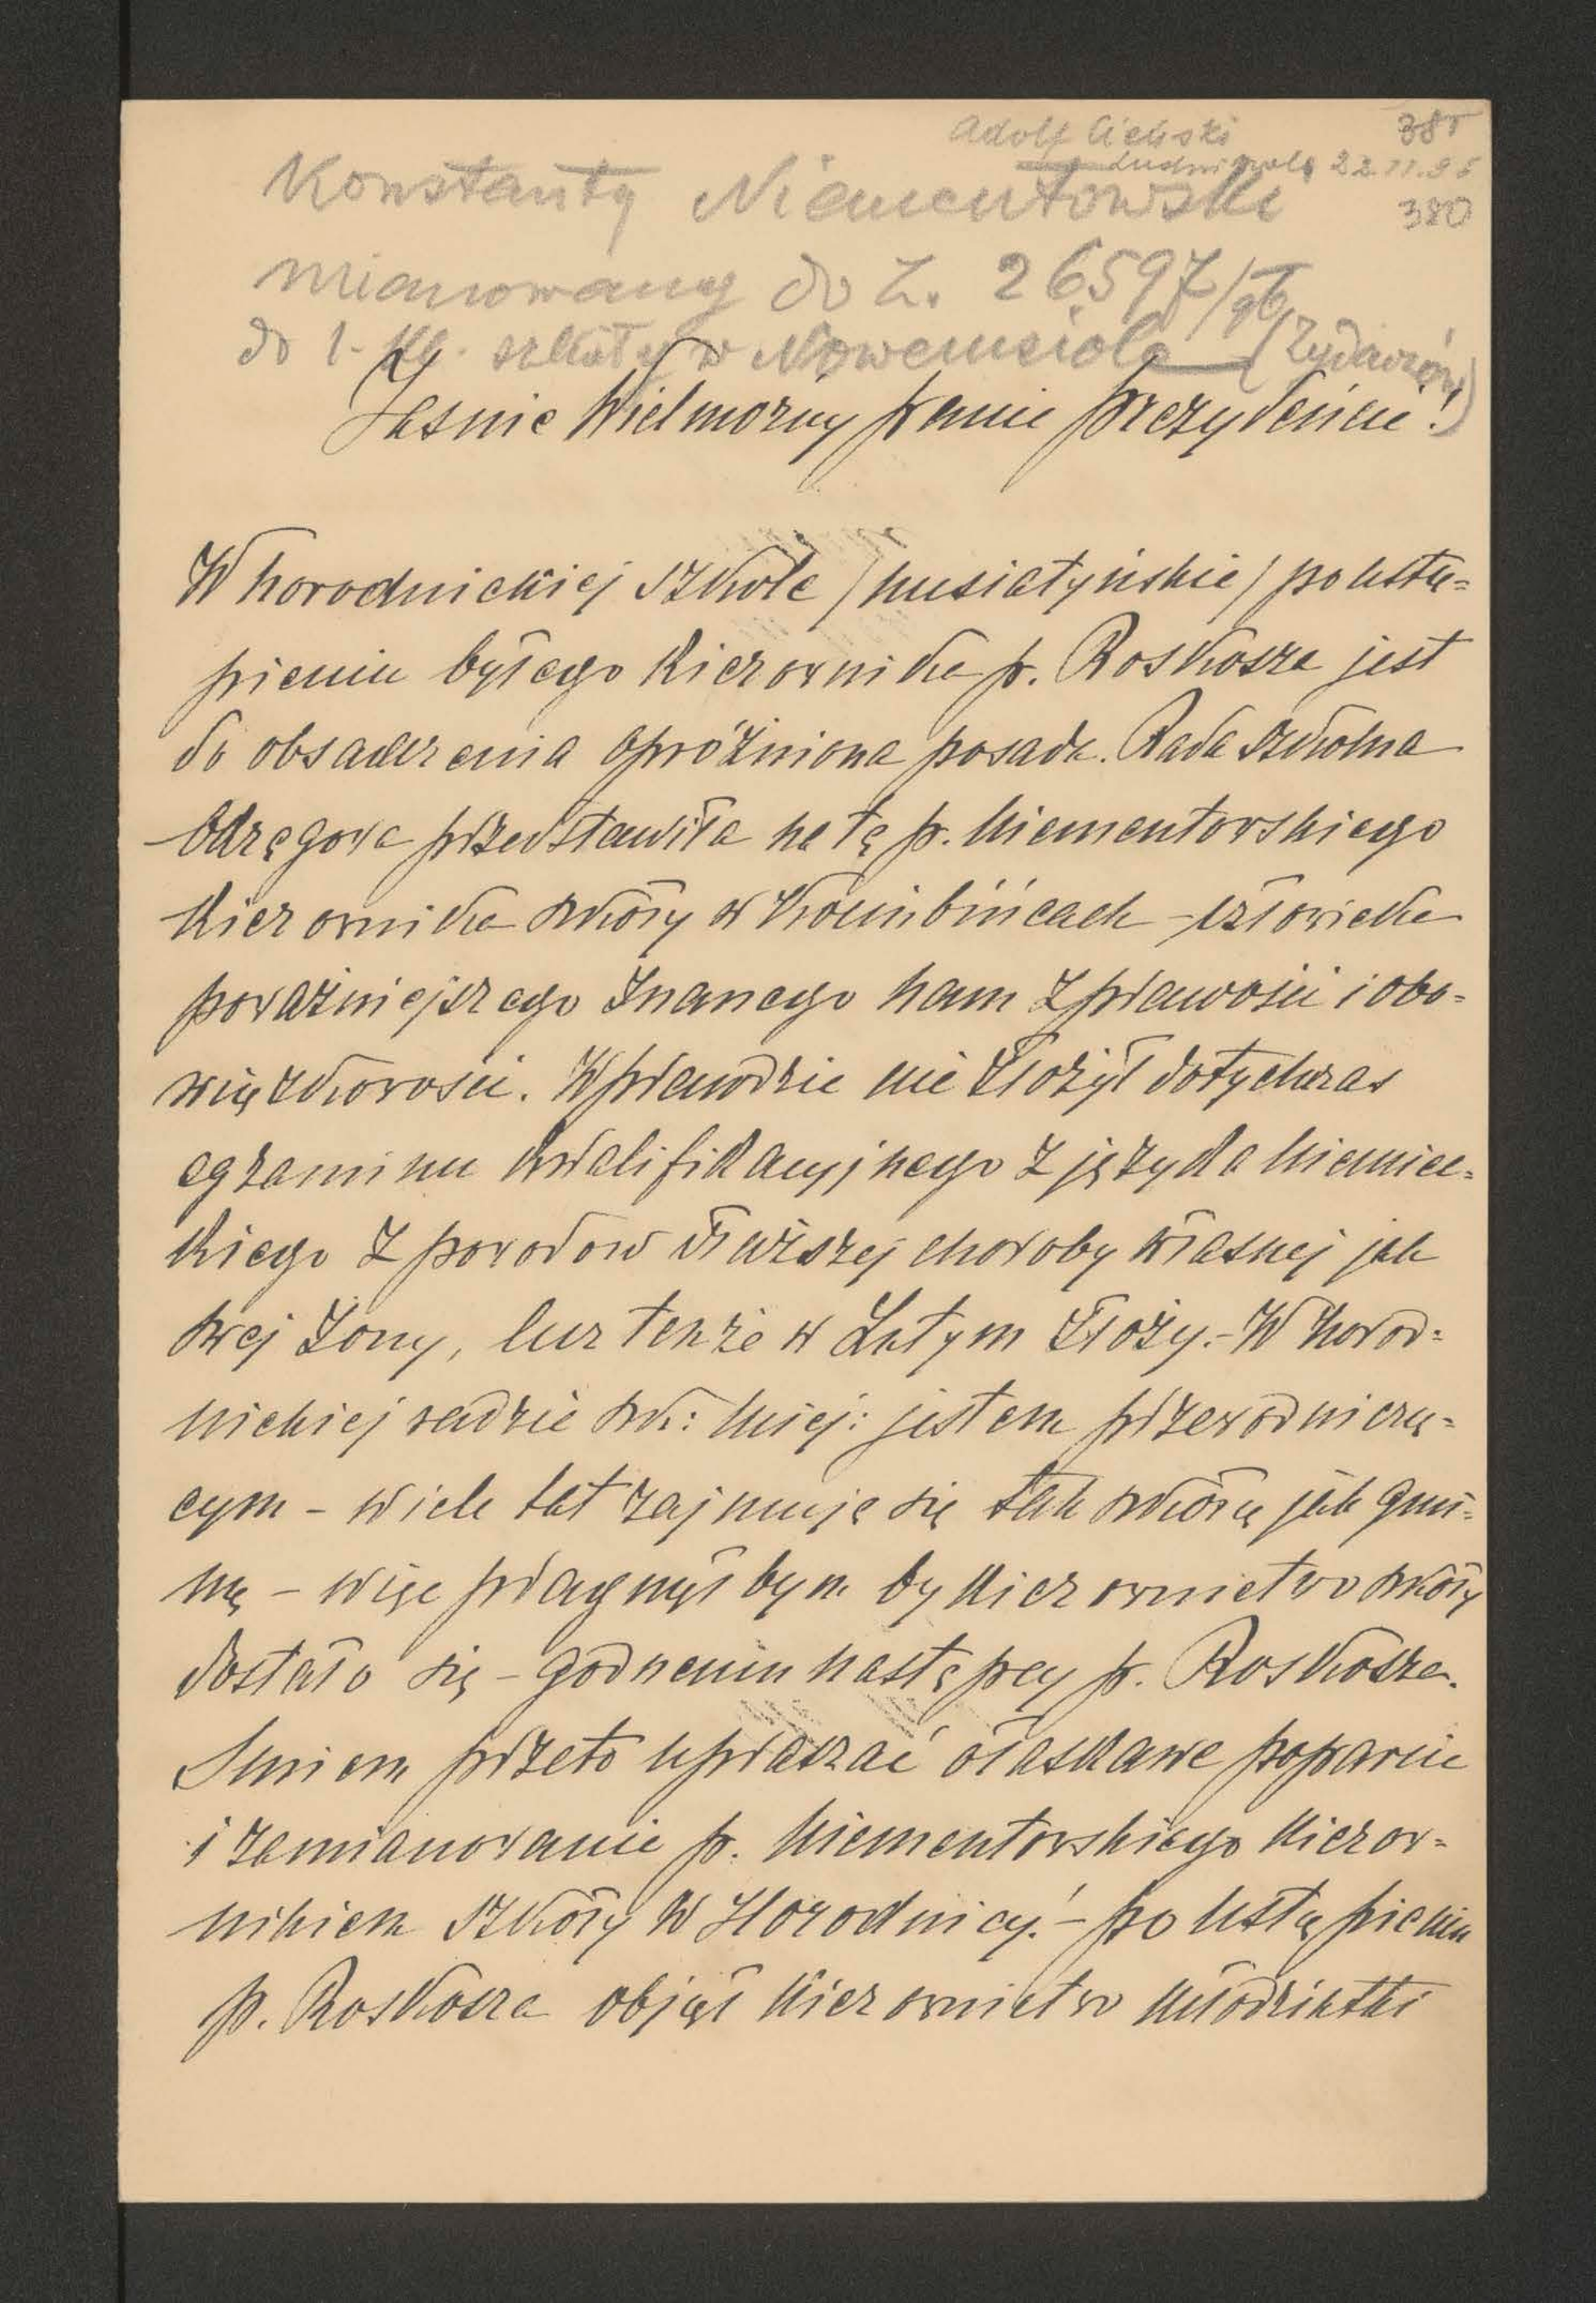 Adolf Cieński 385
22.11.95
Konstanty Niementowski 380
mianowany do L. 26597/96
do 1-kl. szkoły w Nowemsiole (Żydaczów)
Jaśnie Wielmożny panie prezydencie!
W horodnickiej szkole /husiatyńskie/ po ustą=
pieniu byłego kierownika p. Roskosza jest
do obsadzenia opróżniona posada. Rada szkolna
okręgowa przedstawiła na tę p. Niementowskiego
kierownika szkoły w – człowieka
poważniejszego znanego nam z prawości i obo=
wiązkowości. Wprawdzie nie złożył dotychczas
egzaminu kwalifikacyjnego z języka niemiec=
kiego z powodów dłuższej choroby własnej jak
swej żony, lecz tenże w Lutym złoży.– W horod=
nickiej radzie szk: miej: jestem przewodniczą=
cym – wiele lat zajmuję się tak szkołą jak gmi=
ną – więc pragnąłbym by kierownictwo szkoły
dostało się – godnemu następcy p. Roskosza.
Śmiem przeto upraszać o łaskawe poparcie
i zamianowanie p. Niementowskiego kierow=
nikiem szkoły w Horodnicy! – po ustąpieniu
p. Roskosza objął kierownictwo młodziutki